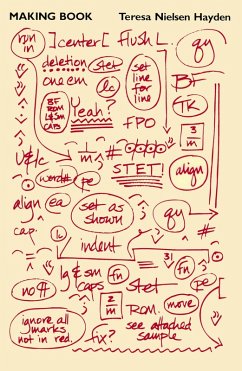 MAKING BOOK Teresa Nielsen Hayden
run in ]center[ flush L. qy
deletion stet set line for line
one em lc BF
BF ROM L&SM CAPS Yeah? TK
FPO 3/m
U&lc 1/m #
STET! align
word# pe
align ea set as shown qy
cap.
lc indent
lg & sm caps fn 3/ fn
no# Stet pe
2/m ROM. move
ignore all marks not in red. fix? see attached sample